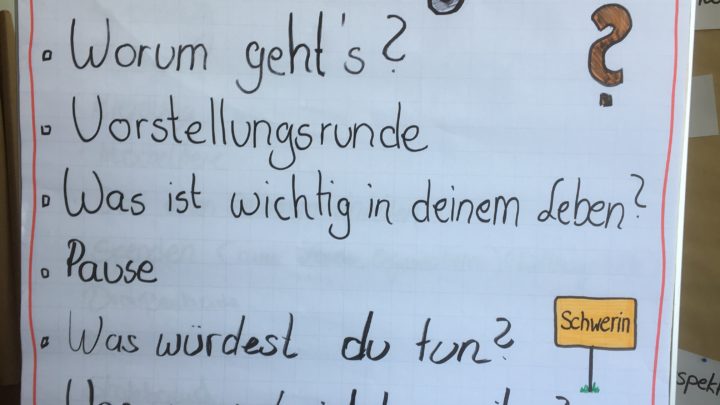 Worum geht's?
?
Vorstellungsrunde
Was ist wichtig in deinem Leben?
Pause
Schwerin
Was würdest du tun?